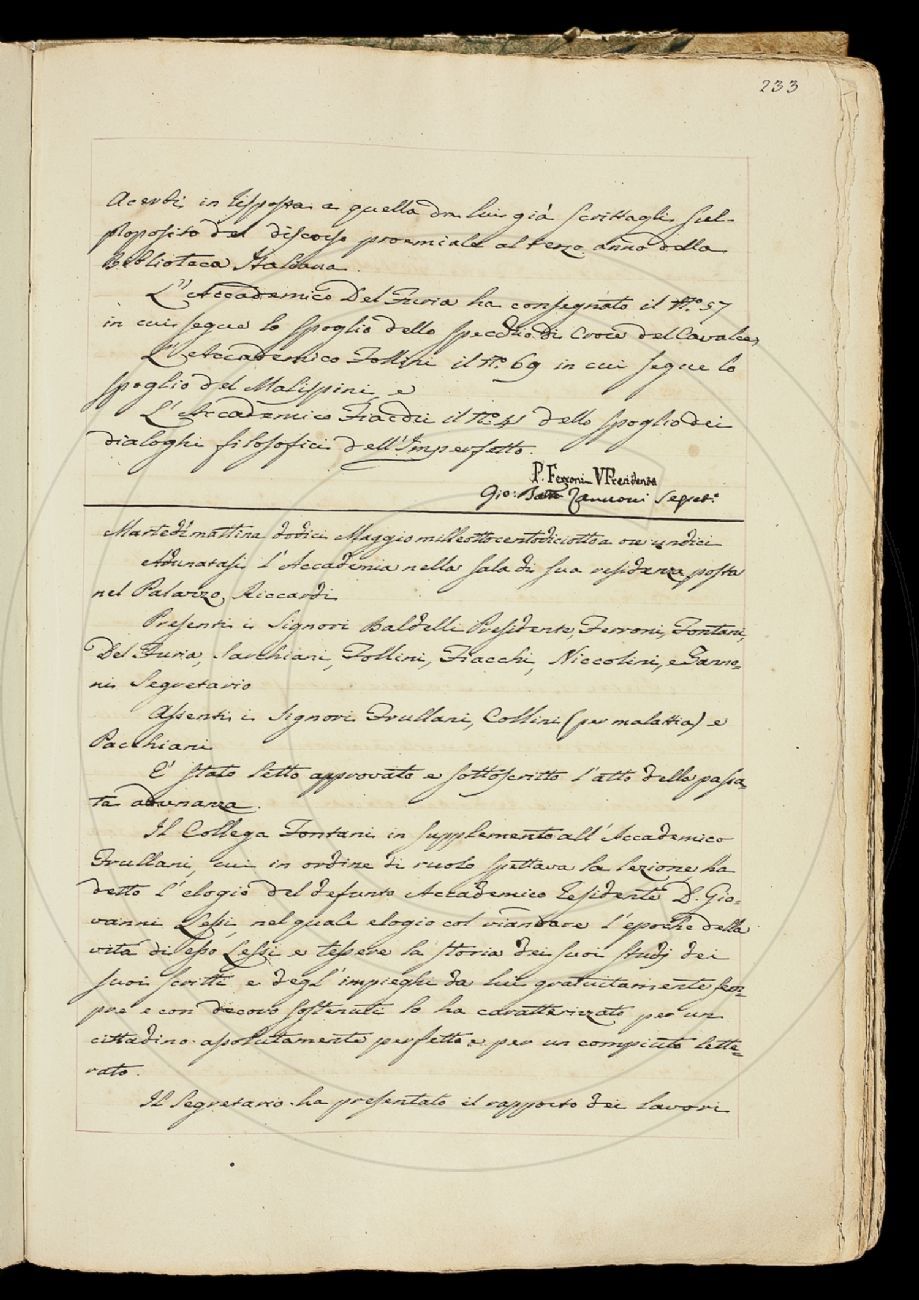 233
Acerbi in risposta a quella da lui già scrittagli sul
proposito del discorso proemiale al terzo anno della
Biblioteca Italiana.
L'Accademico Del Furia ha consegnato il N.o 57
in cui segue lo spoglio dello specchio di Croce del Cavalca,
L'Accademico Follini il N.o 69 in cui segue lo
spoglio del Malispini, e
L'Accademico Fiacchi il N.o 41 dello spoglio dei
dialoghi filosofici dell'Imperfetto.
P. Ferroni V Presidente
Gio: Batta Zannoni Segret.o
Martedì mattina dodici Maggio milleottocentodiciotto a ore undici
Adunatasi l'Accademia nella sala di sua residenza posta
nel Palazzo Riccardi
Presenti i Signori Baldelli Presidente, Ferroni, Fontani,
Del Furia, Sarchiani, Follini, Fiacchi, Niccolini, e Zanno=
ni Segretario
Assenti i Signori Frullani, Collini (per malattia) e
Pacchiani
E' stato letto approvato e sottoscritto l'atto della passa
ta adunanza.
Il Collega Fontani in supplemento all'Accademico
Frullani, cui in ordine di ruolo spettava la lezione ha
detto l'elogio del defunto Accademico Residente D. Gio=
vanni Lessi, nel quale elogio col riandare l'epoche della
vita di esso Lessi e tessere la storia dei suoi studj dei
suoi scritti, e degl'impieghi da lui gratuitamente sem=
pre e con decoro sostenuti lo ha caratterizzato per un
cittadino assolutamente perfetto e per un compiuto lette=
rato.
Il Segretario ha presentato il rapporto dei lavori